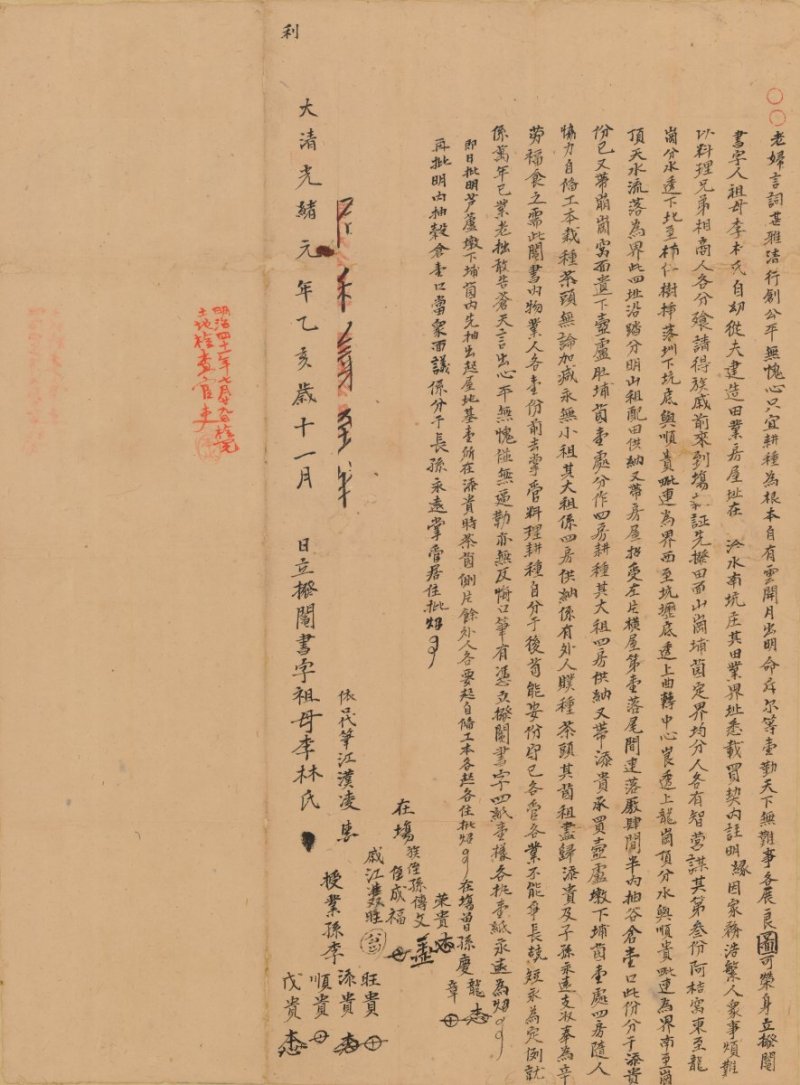 老婦言詞甚雅清行創公平無愧心只宜耕種為根本自有雲開月出明命爾等壹勤天下無難事各展良圖可榮身立撥鬮
書字人祖母李林氏自幼從夫建造田業房屋址在 冷水南坑庄其田業界址悉載買契內註明緣因家務浩繁人衆事煩難
以料理兄弟相商人各分爨請得族戚前來到塲証先撥田面山崗埔茵定界均分人各有智營謀其第叁份阿桔窩東至龍
崗分水透下北至柿仁樹掃落圳下坑底與順貴毗連為界西至坑壢底透上曲轉中心崀透上龍崗頂分水與順貴毗連為界南至崗
頂天水流落為界此四址沿踏分明山租配田供納又帶房屋招受左片橫屋第壹落尾間連落廒肆間半內抽谷倉壹口此份分于添貴
份已又帶崩崗窩面遺下壺盧肚埔茵壹處分作四房耕種其大租四房供納又帶添貴承買壺盧墩下埔茵壹處四房隨人
協力自備工本栽種茶頭無論加減永無小租其大租係四房供納係有外人贌種茶頭其茵租盡歸添貴及子孫永遠支收奉為辛
勞福食之需此鬮書內物業人各壹份前去掌管料理耕種自分于後苟能安份守己各管各業不能爭長競短永為定例就
係萬年己業老拙敢告蒼天言出心平無愧僅無逼勒亦無反悔口筆有憑立撥鬮書字四紙壹樣各執壹紙永遠為炤
即日批明芦蘆墩下埔茵內先抽出起屋地基壹所在添貴時茶茵側片餘外人各要起自備工本各起各住批炤
再批明內抽穀倉壹口當衆面議係分于長孫永遠掌管居住批炤
在塲曾孫慶龍
章
榮貴
在塲族侄孫傳文
侄成福
戚江進双胜
依口代筆江漢凌
授業孫李旺貴
添貴
順貴
戊貴
大清光緒元年乙亥歲十一月 日立撥鬮書字祖母李林氏
明治四十一年
土地檢查官吏
利